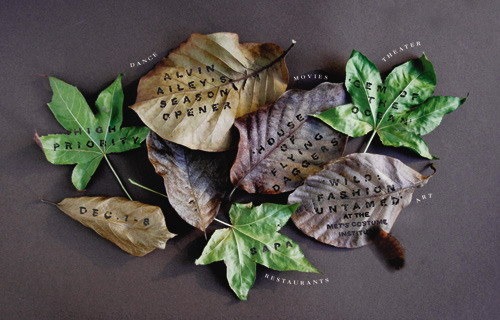 DANCE
ALVIN
AILEY'S
SEASON
OPENER
MOVIES
HOUSE
OF
FLYING
DAGGERS
THEATER
GEM OF
THE
HIGH
PRIORITY
DEC. 1-8
WILD:
FASHION
UNTAMED,
AT THE
MET'S COSTUME
INSTITUTE
ART
RESTAURANTS